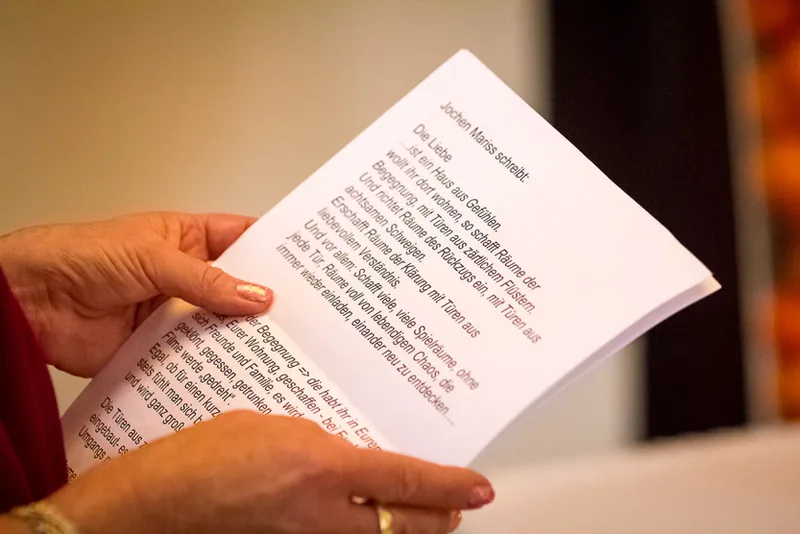 Jochen Mariss schreibt:
Die Liebe
...ist ein Haus aus Gefühlen.
wollt ihr dort wohnen, so schafft Räume der
Begegnung, mit Türen aus zärtlichem Flüstern.
Und richtet Räume des Rückzugs ein, mit Türen aus
achtsamen Schweigen.
Erschafft Räume der Klärung mit Türen aus
liebevollem Verständnis.
Und vor allem: Schafft viele, viele Spielräume, ohne
jede Tür, Räume voll von lebendigem Chaos, die
immer wieder einladen, einander neu zu entdecken...
der Begegnung => die habt ihr in Eurem
Eurer Wohnung, geschaffen - bei
sich Freunde und Familie, es wird
gekocht, gegessen, getrunken
Filme werde „gedreht".
Egal, ob für einen kurz
stets fühlt man sich
und wird ganz
Die Türen aus
eingebaut- es
Umgangs